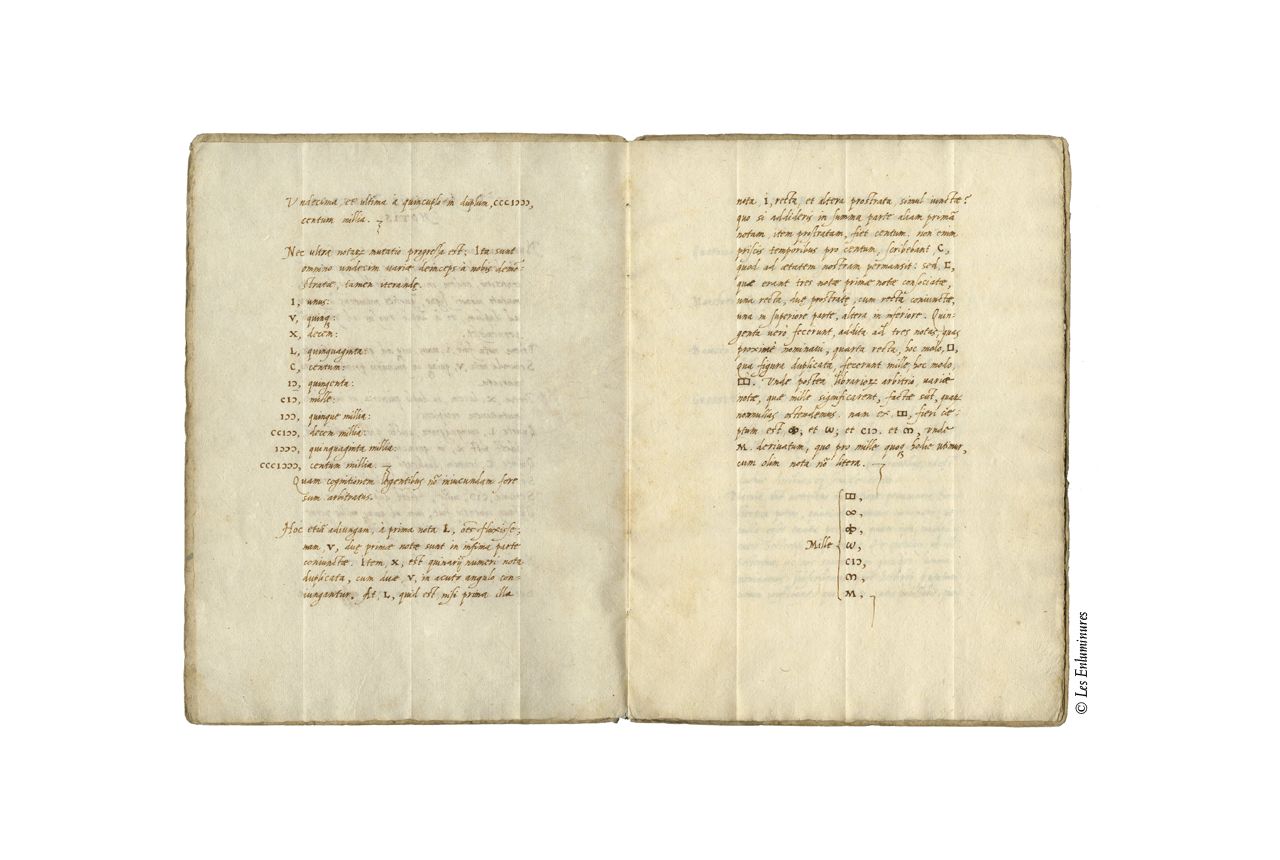 Undecima, et ultima à quincuplo in duplum, CCCIↃↃↃ,
centum millia.
Nec ultra notarᵹ mutatio progressa est: Ita sunt
omnino undecim variæ deinceps à nobis demõ
stratæ, tamen iterandę.
I, unus:
V, quinqᵹ:
X, decem:
L, quinquaginta:
C, centum:
IↃ, quingenta:
CIↃ, mille:
IↃↃ, quinque millia:
CCIↃↃ, decem millia:
IↃↃↃ, quinquaginta millia:
CCCIↃↃↃ, centum millia.
Quam cognitionem legentibus nõ iniucundam fore
sum arbitratus.
Hoc etiã adiungam, à prima nota I, oẽs fluxisse,
nam V, duę primæ notæ sunt in infima parte
coniunctæ. Item, X, est quinarij numeri nota
duplicata, cum duæ, V, in acuto angulo con-
iungantur. At, L, quid est nisi prima illa
nota, I, recta, et altera prostrata, simul iunctæ?
quo si addideris in summa parte aliam primã
notam item prostratam, fiet centum. non enim
priscis temporibus pro centum, scribebant C,
quod ad ætatem nostram permansit: sed, [,
quæ erant tres notæ primæ notæ consociatæ,
una recta, duę prostratę, cum recta coniunctæ,
una in superiore parte, altera in inferiore. Quin-
genta vero fecerunt, addita ad tres notas, quas
proximè nominavi, quarta recta, hoc modo, □,
qua figura duplicata, fecerunt mille, hoc modo,
□□. Unde postea librariorᵹ arbitrio, variæ
notæ, quæ mille significarent, factæ sũt, quarᵹ
nonnullas ostendemus. nam ex □□, fieri cœ-
ptum est ↀ, et ω, et CIↃ, et ന, unde
M. derivatum, quo pro mille quoqᵹ hodie utimur,
cum olim nota nõ litera.
Mille
□□,
∞,
ↀ,
ω,
CIↃ,
ന,
M.
© Les Enluminures